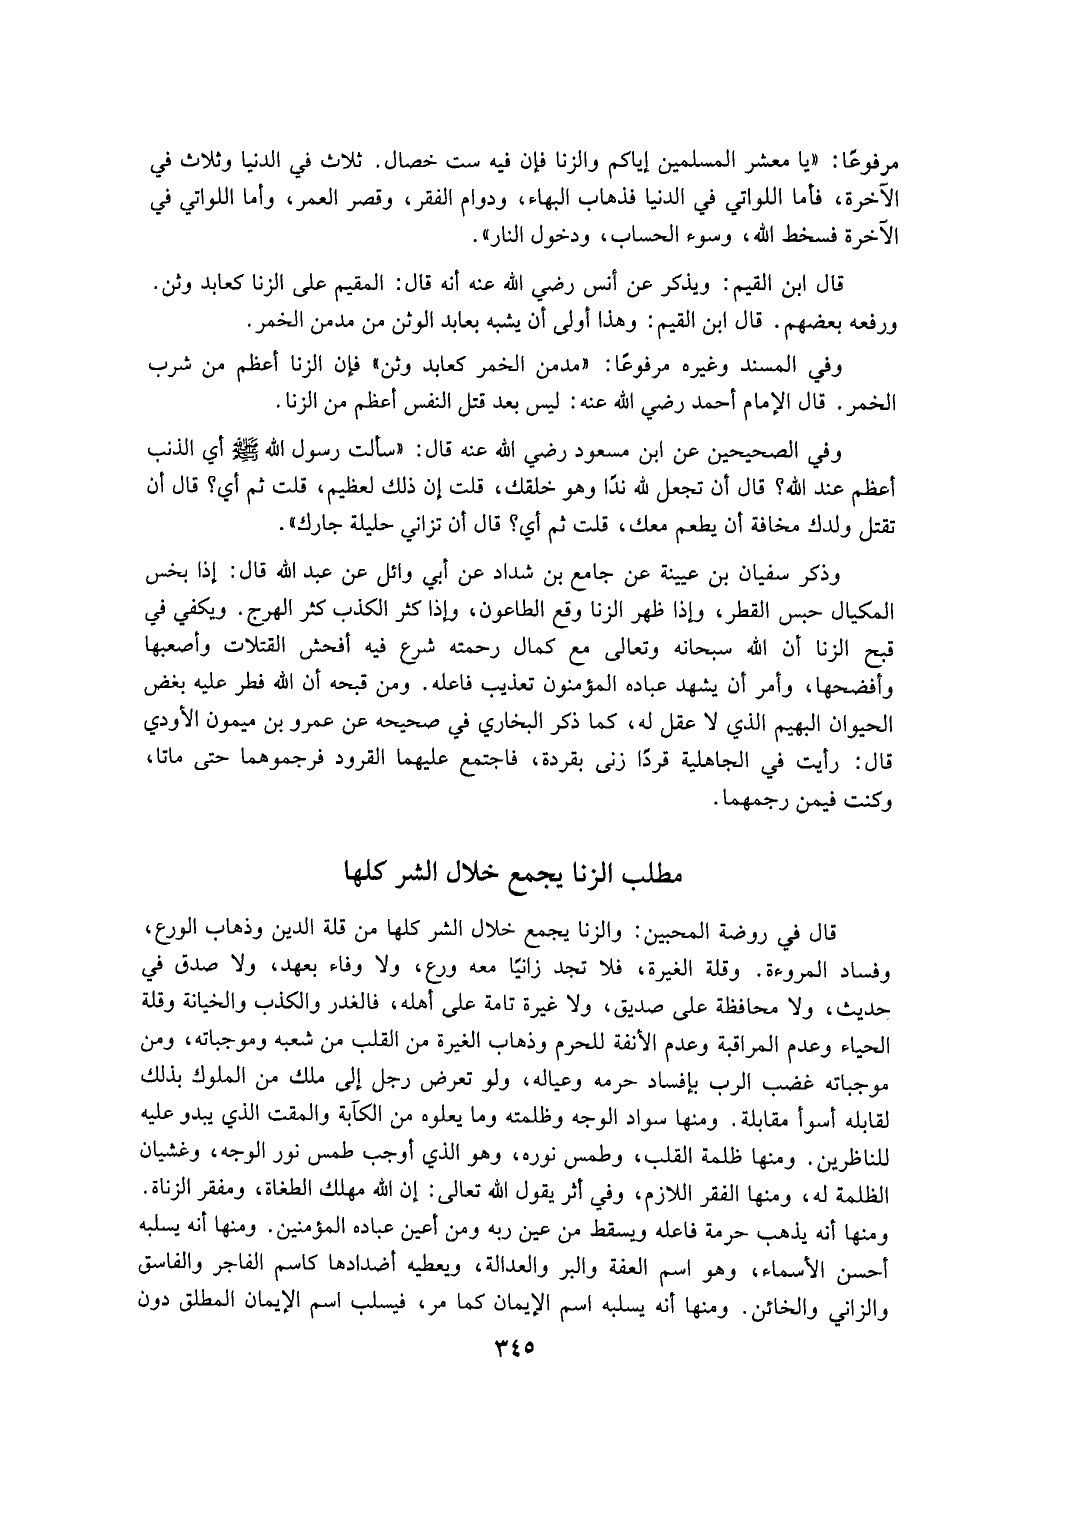 مرفوعًا: «يا معشر المسلمين إياكم والزنا فإن فيه ست خصال. ثلاث في الدنيا وثلاث في
الآخرة، فأما اللواتي في الدنيا فذهاب البهاء، ودوام الفقر، وقصر العمر، وأما اللواتي في
الآخرة فسخط الله، وسوء الحساب، ودخول النار».
قال ابن القيم: ويذكر عن أنس رضي الله عنه أنه قال: المقيم على الزنا كعابد وثن.
ورفعه بعضهم. قال ابن القيم: وهذا أولى أن يشبه بعابد الوثن من مدمن الخمر.
وفي المسند وغيره مرفوعًا: «مدمن الخمر كعابد وثن» فإن الزنا أعظم من شرب
الخمر. قال الإمام أحمد رضي الله عنه: ليس بعد قتل النفس أعظم من الزنا.
وفي الصحيحين عن ابن مسعود رضي الله عنه قال: «سألت رسول الله ﷺ أي الذنب
أعظم عند الله؟ قال أن تجعل لله ندًا وهو خلقك، قلت إن ذلك لعظيم، قلت ثم أي؟ قال أن
تقتل ولدك مخافة أن يطعم معك، قلت ثم أي؟ قال أن تزاني حليلة جارك».
وذكر سفيان بن عيينة عن جامع بن شداد عن أبي وائل عن عبد الله قال: إذا بخس
المكيال حبس القطر، وإذا ظهر الزنا وقع الطاعون، وإذا كثر الكذب كثر الهرج. ويكفي في
قبح الزنا أن الله سبحانه وتعالى مع كمال رحمته شرع فيه أفحش القتلات وأصعبها
وأفضحها، وأمر أن يشهد عباده المؤمنون تعذيب فاعله. ومن قبحه أن الله فطر عليه بغض
الحيوان البهيم الذي لا عقل له، كما ذكر البخاري في صحيحه عن عمرو بن ميمون الأودي
قال: رأيت في الجاهلية قردًا زنى بقردة، فاجتمع عليهما القرود فرجموهما حتى ماتا،
وكنت فيمن رجمهما.
مطلب الزنا يجمع خلال الشر كلها
قال في روضة المحبين: والزنا يجمع خلال الشر كلها من قلة الدين وذهاب الورع،
وفساد المروءة. وقلة الغيرة، فلا تجد زانيًا معه ورع، ولا وفاء بعهد، ولا صدق في
حديث، ولا محافظة على صديق، ولا غيرة تامة على أهله، فالغدر والكذب والخيانة وقلة
الحياء وعدم المراقبة وعدم الأنفة للحرم وذهاب الغيرة من القلب من شعبه وموجباته، ومن
موجباته غضب الرب بإفساد حرمه وعياله، ولو تعرض رجل إلى ملك من الملوك بذلك
لقابله أسوأ مقابلة. ومنها سواد الوجه وظلمته وما يعلوه من الكآبة والمقت الذي يبدو عليه
للناظرين. ومنها ظلمة القلب، وطمس نوره، وهو الذي أوجب طمس نور الوجه، وغشيان
الظلمة له، ومنها الفقر اللازم، وفي أثر يقول الله تعالى: إن الله مهلك الطغاة، ومفقر الزناة.
ومنها أنه يذهب حرمة فاعله ويسقط من عين ربه ومن أعين عباده المؤمنين. ومنها أنه يسلبه
أحسن الأسماء، وهو اسم العفة والبر والعدالة، ويعطيه أضدادها كاسم الفاجر والفاسق
والزاني والخائن. ومنها أنه يسلبه اسم الإيمان كما مر، فيسلب اسم الإيمان المطلق دون
٣٤٥